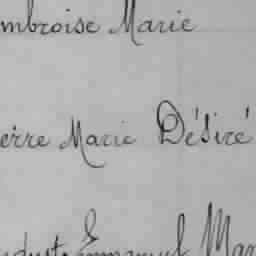 mbroise Marie
erre Marie Désiré
Emmanuel Mar